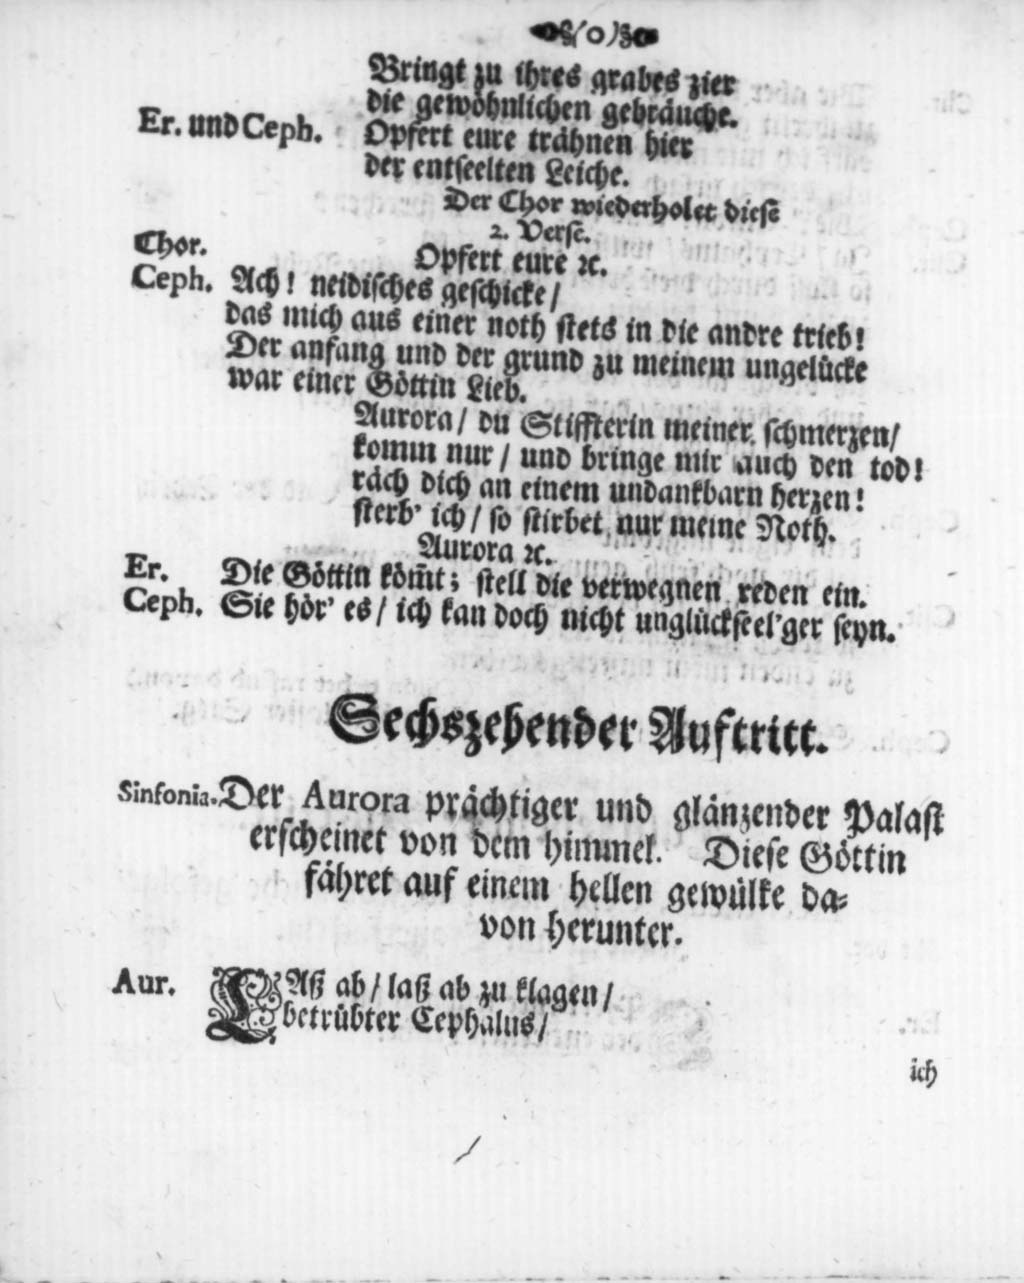 (o)
Bringt zu ihres grabes zier
die gewöhnlichen gebräuche.
Er. und Ceph. Opfert eure trähnen hier
der entseelten Leiche.
Der Chor wiederholet diese
2. Verse.
Chor. Opfert eure ꝛc.
Ceph. Ach! neidisches geschicke/
das mich aus einer noth stets in die andre trieb!
Der anfang und der grund zu meinem ungelücke
war einer Göttin Lieb.
Aurora/ du Stiffterin meiner schmerzen/
komm nur/ und bringe mir auch den tod!
räch dich an einem undankbarn herzen!
sterb' ich/ so stirbet nur meine Noth.
Aurora ꝛc.
Er. Die Göttin köm̃t; stell die verwegnen reden ein.
Ceph. Sie hör' es/ ich kan doch nicht unglückseel'ger seyn.
Sechszehender Auftritt.
Sinfonia. Der Aurora prächtiger und glänzender Palast
erscheinet von dem himmel. Diese Göttin
fähret auf einem hellen gewülke da-
von herunter.
Aur. LAß ab/ laß ab zu klagen/
betrübter Cephalus/
ich